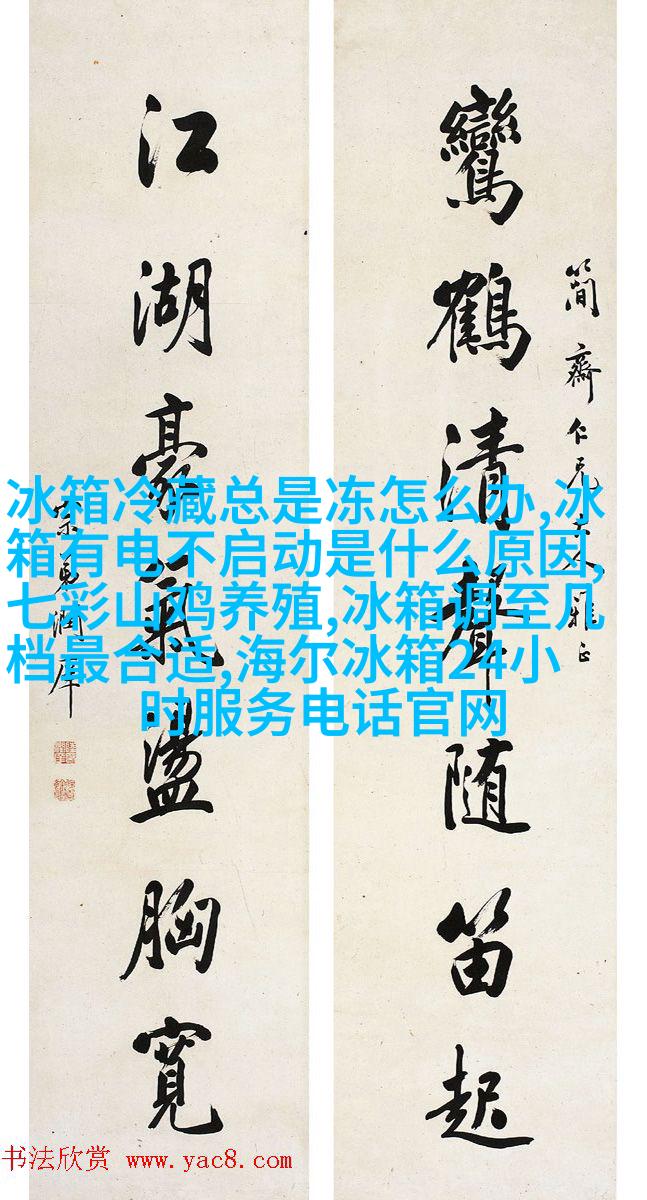 鸞鶴清聲随笛起
簡齋仁兄大人雅正
江湖豪氣盪胸寬
冰箱冷藏总是冻怎么办,冰
箱有电不启动是什么原因,
七彩山鸡养殖,冰箱调至几
档最合适,海尔冰箱24小
时服务电话官网
书法欣赏 www.yac8.com